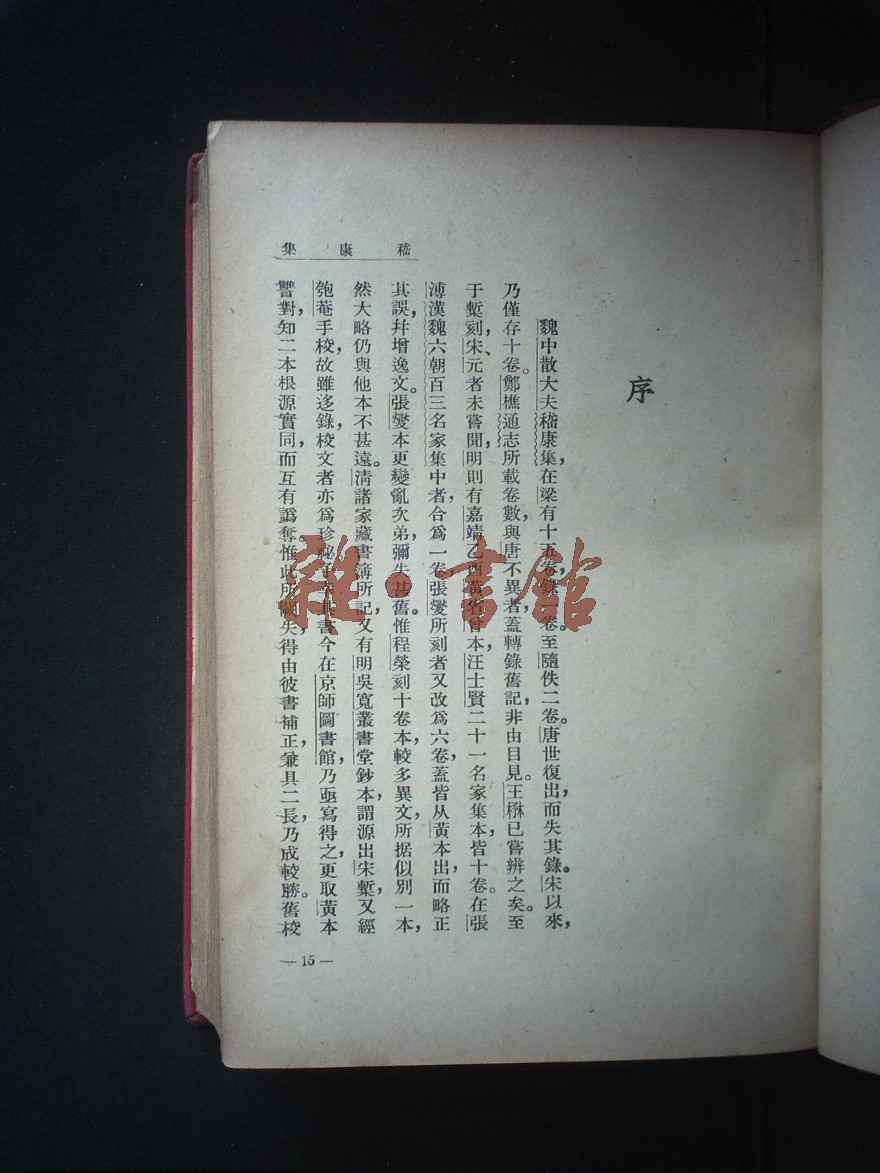 嵇康集
序
魏中散大夫嵇康集,在梁有十五卷,錄一卷。至隨佚二卷。唐世復出,而失其錄。宋以來,
乃僅存十卷。鄭樵通志所載卷數,與唐不異者,蓋轉錄舊記,非由目見。王楙已嘗辨之矣。至
于槧刻,宋、元者未嘗聞,明則有嘉靖乙酉黃省曾本,汪士賢二十一名家集本,皆十卷。在張
溥漢魏六朝百三名家集中者,合爲一卷,張燮所刻者又改爲六卷,蓋皆从黃本出,而略正
其誤,幷增逸文。張燮本更變亂次弟,彌失其舊。惟程榮刻十卷本,較多異文,所据似別一本,
然大略仍與他本不甚遠。淸諸家藏書簿所記,又有明吳寬叢書堂鈔本,謂源出宋槧,又經
匏菴手校,故雖迻錄,校文者亦爲珍祕。書今在京師圖書館,乃亟寫得之,更取黃本
讐對,知二本根源實同,而互有譌奪。惟此所闕失,得由彼書補正,兼具二長,乃成較勝。舊校
— 15 —
雜·書館